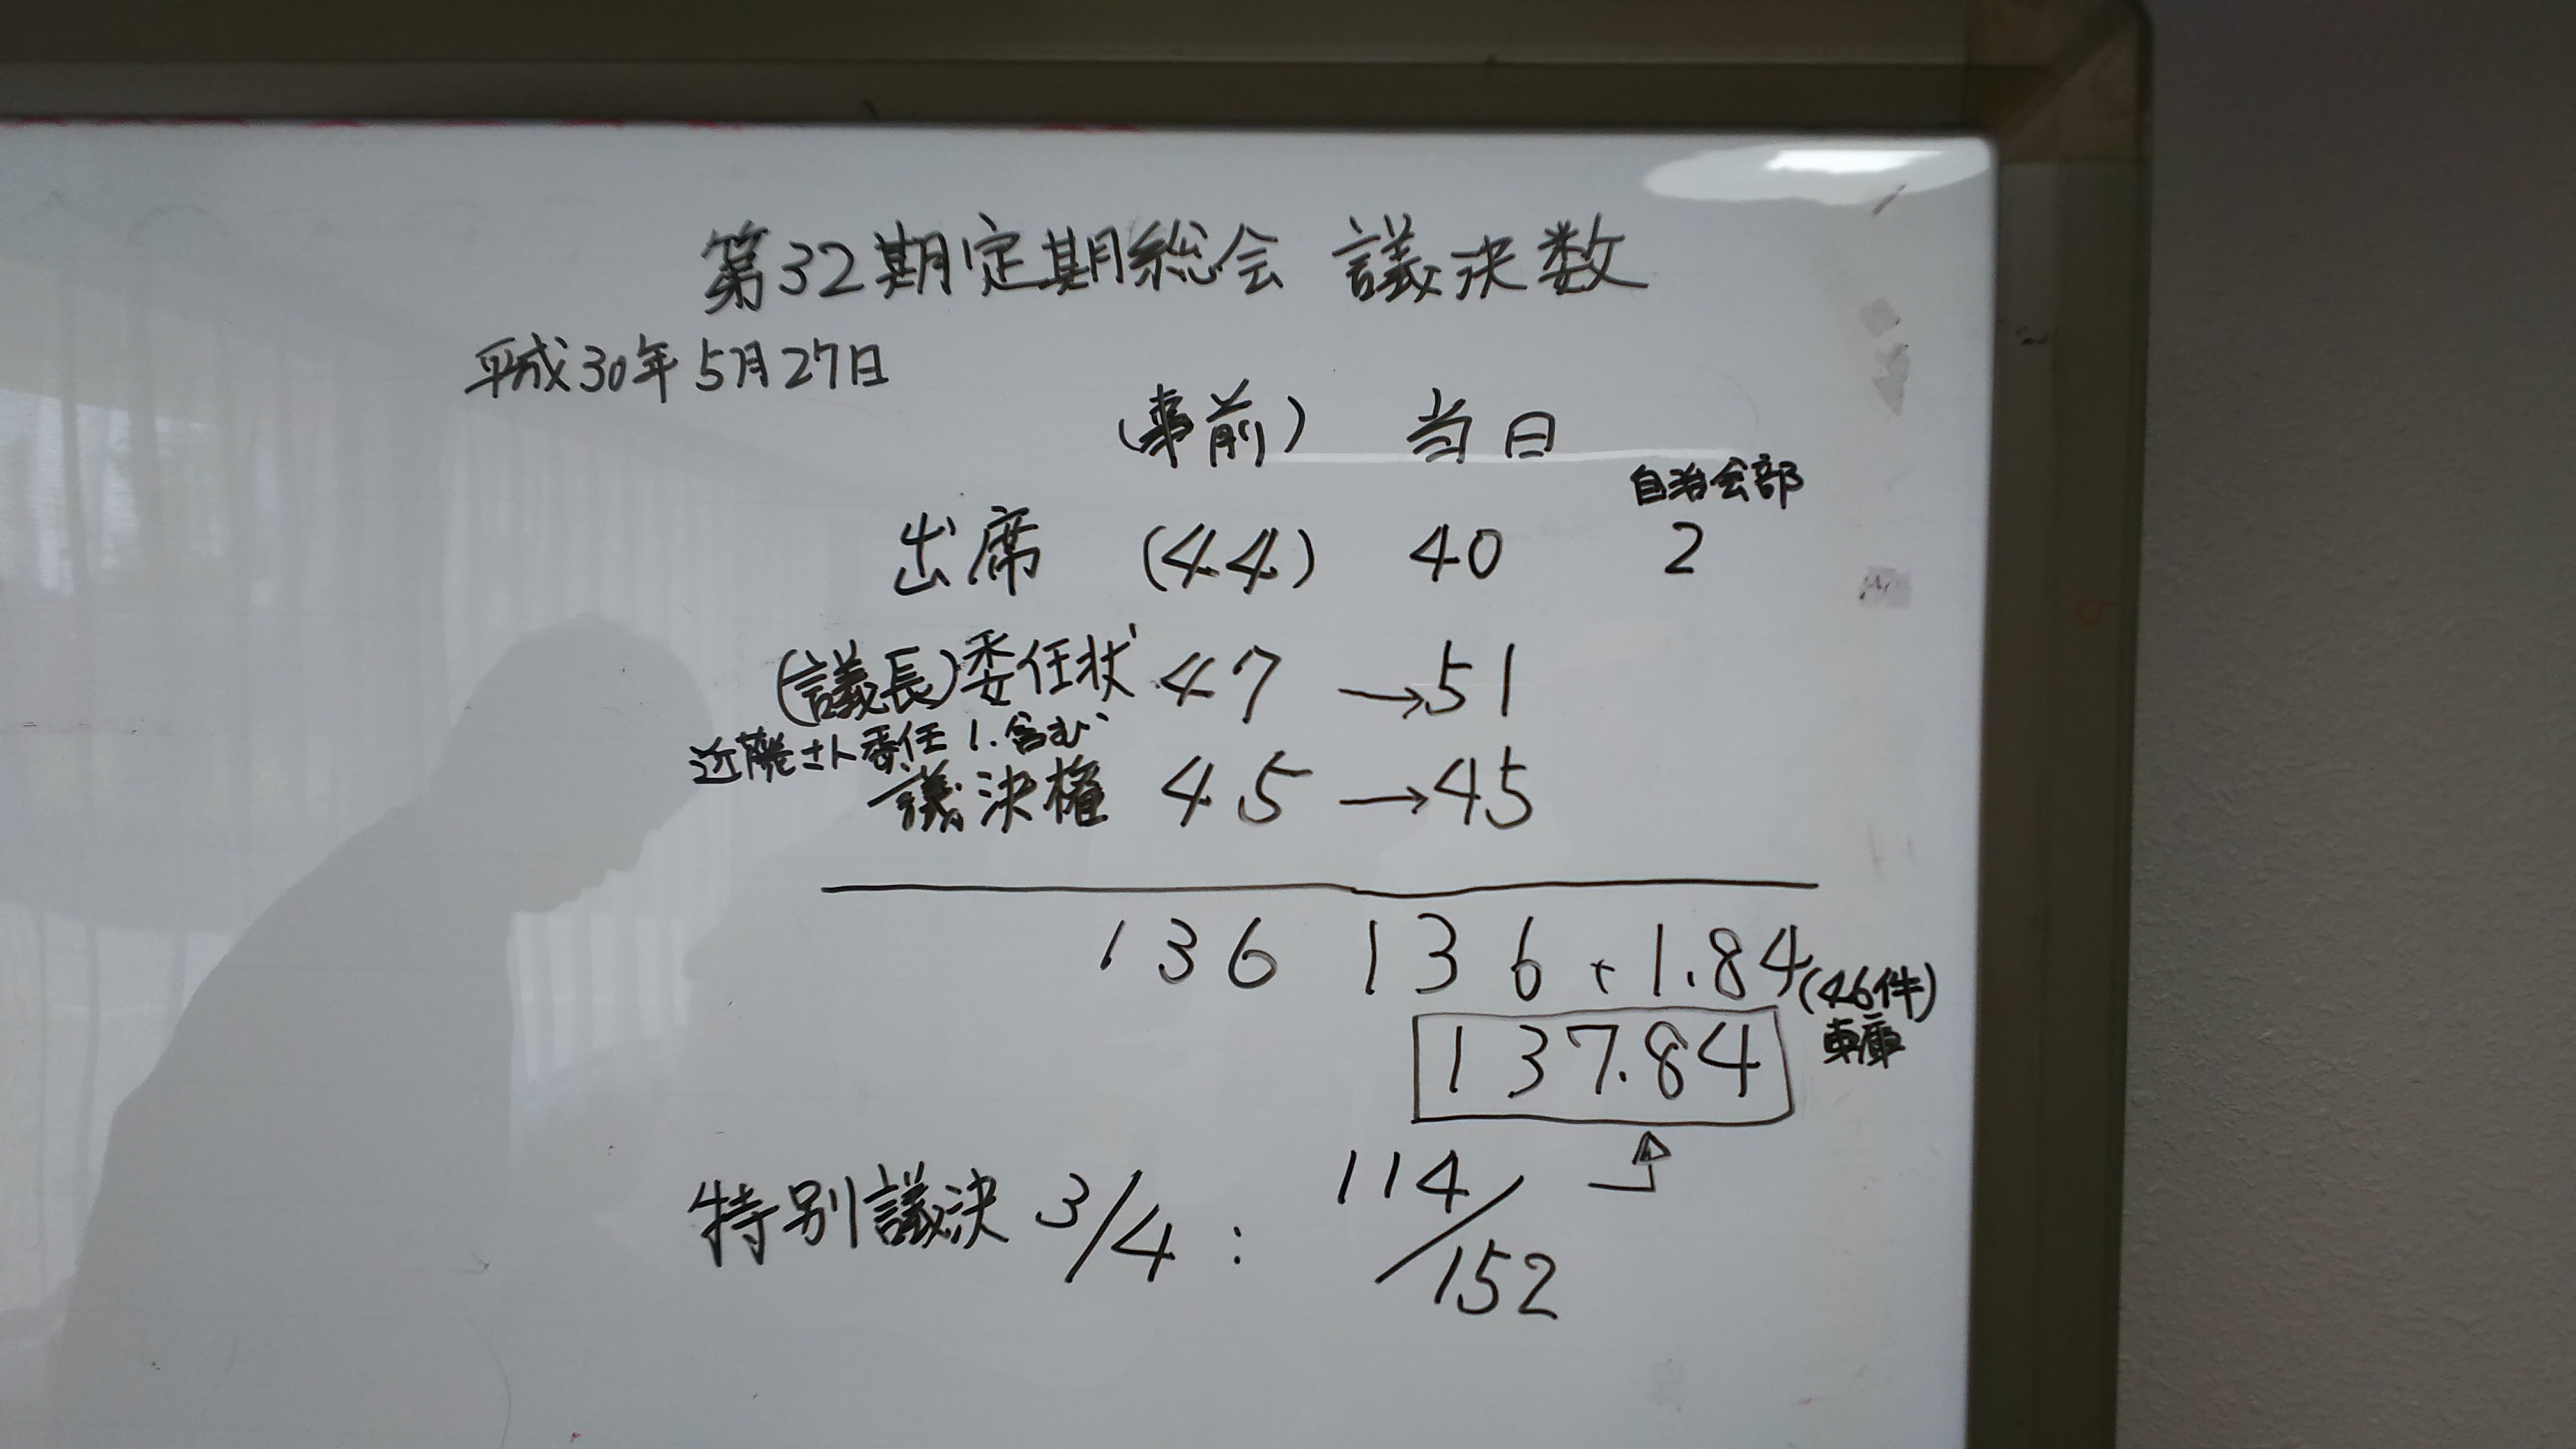 第32期定期総会 議決数
平成30年5月27日
(事前) 当日
自治会部
出席 (44) 40 2
(議長)委任状 47 →51
近藤さん委任 1.含む
議決権 45 →45
136 136 + 1.84(46件)
車庫
137.84
特別議決 3/4 : 114/152